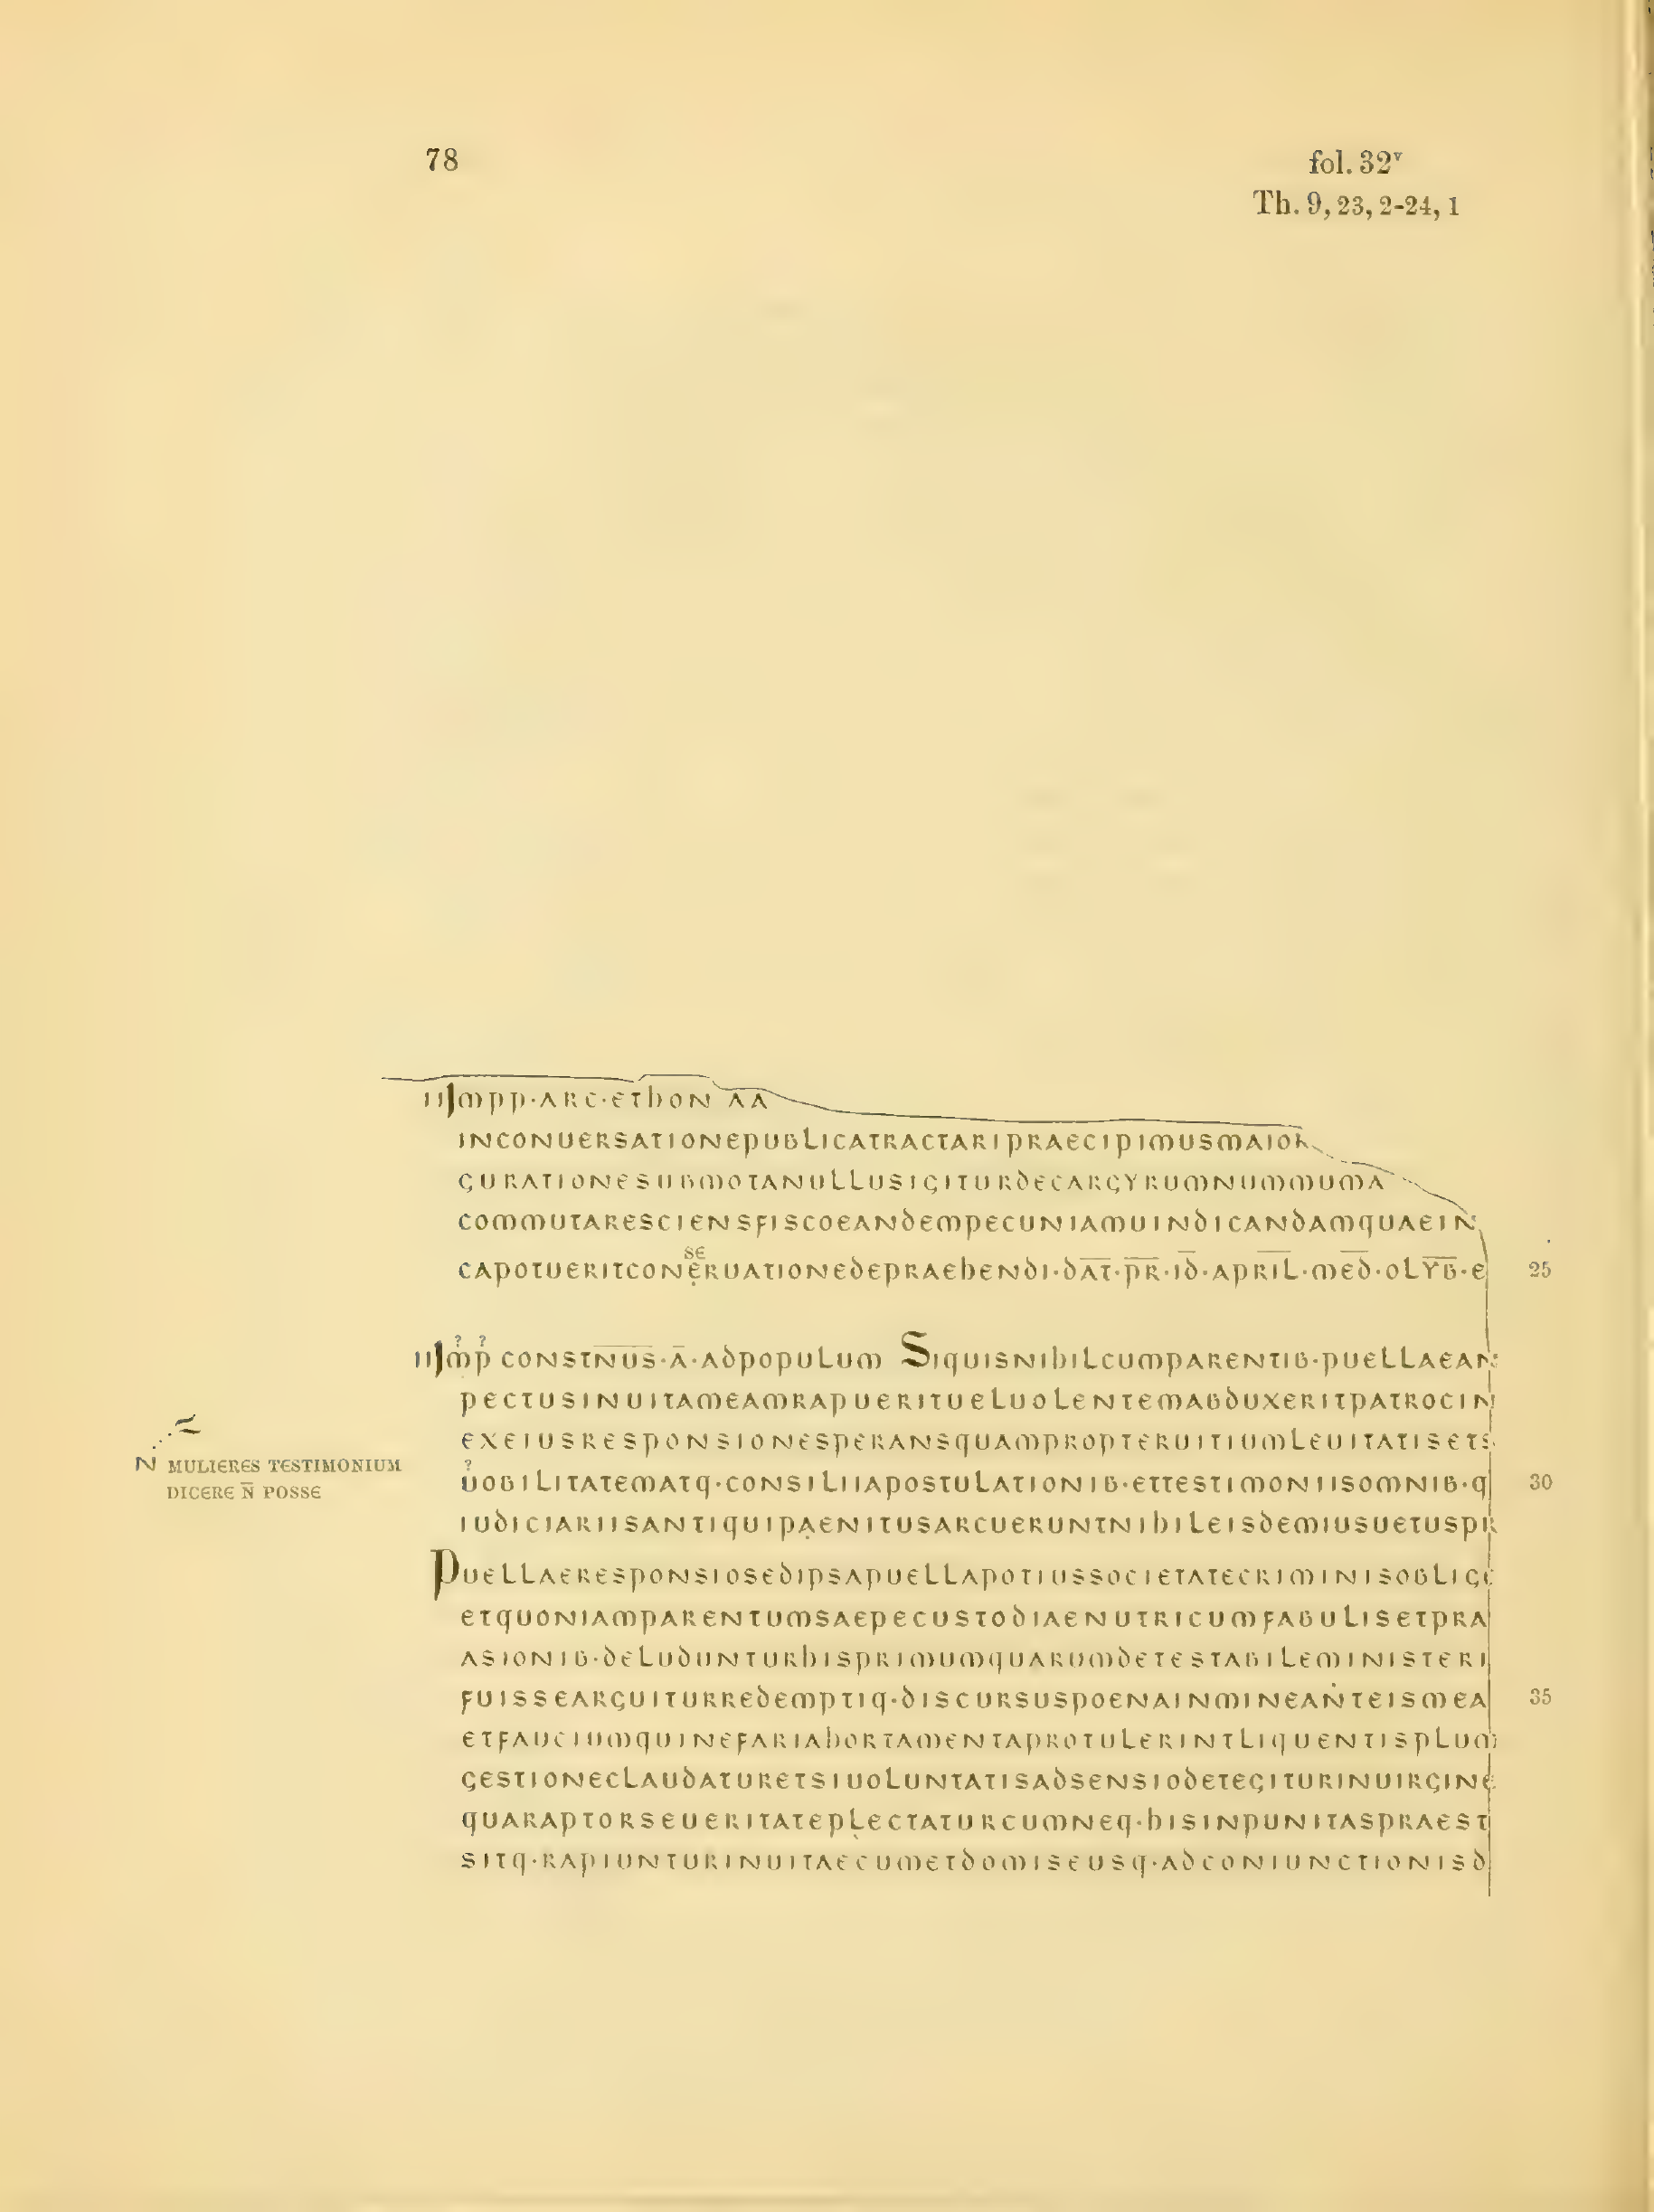 78
fol. 32ᵛ
Th. 9, 23, 2-24, 1
IIImpp·ARC·EThON AA
INCONUERSATIONEPUBLICATRACTARIPRAECIPIMUSMAIOR
GURATIONESUBMOTANULLUSIGITURDECARGYRUMNUMMUMA
COMMUTARESCIENSFISCOEANDEMPECUNIAMUINDICANDAMQUAEIN
SE
CAPOTUERITCONERUATIONEDEPRAEhENDI·DA̅T̅·P̅R̅·I̅D̅·APRI̅L̅·ME̅D̅·OLY̅B̅·E 25
? ?
IIImp CONSTN̅U̅S̅·A̅·ADPOPULUM SIQUISNIhILCUMPARENTIB·PUELLAEAN
PECTUSINUITAMEAMRAPUERITUELUOLENTEMABDUXERITPATROCIN
EXEIUSRESPONSIONESPERANSQUAMPROPTERUITIUMLEUITATISETS
N MULIERES TESTIMONIUM
DICERE N̅ POSSE
?
UOBILITATEMATQ·CONSILIIAPOSTULATIONIB·ETTESTIMONIISOMNIB·Q 30
IUDICIARIISANTIQUIPẠENITUSARCUERUNTNIhILEISDEMIUSUETUSPR
PUELLAERESPONSIOSEDIPSAPUELLAPOTIUSSOCIETATECRIMINISOBLIGE
ETQUONIAMPARENTUMSAEPECUSTODIAENUTRICUMFABULISETPRA
ASIONIB·DELUDUNTURhISPRIMUMQUARUMDETESTABILEMINISTERI
FUISSEARGUITURREDEMPTIQ·DISCURSUSPOENAINMINEAṄTEISMEA 35
ETFAUCIUMQUINEFARIAhORTAMENTAPROTULERINTLIQUENTISPLUM
GESTIONECLAUDATURETSIUOLUNTATISADSENSIODETEGITURINUIRGINE
QUARAPTORSEUERITATEPḶECTATURCUMNEQ·hISINPUNITASPRAEST
SITQ·RAPIUNTURINUITAECUMETDOMISEUSQ·ADCONIUNCTIONISD